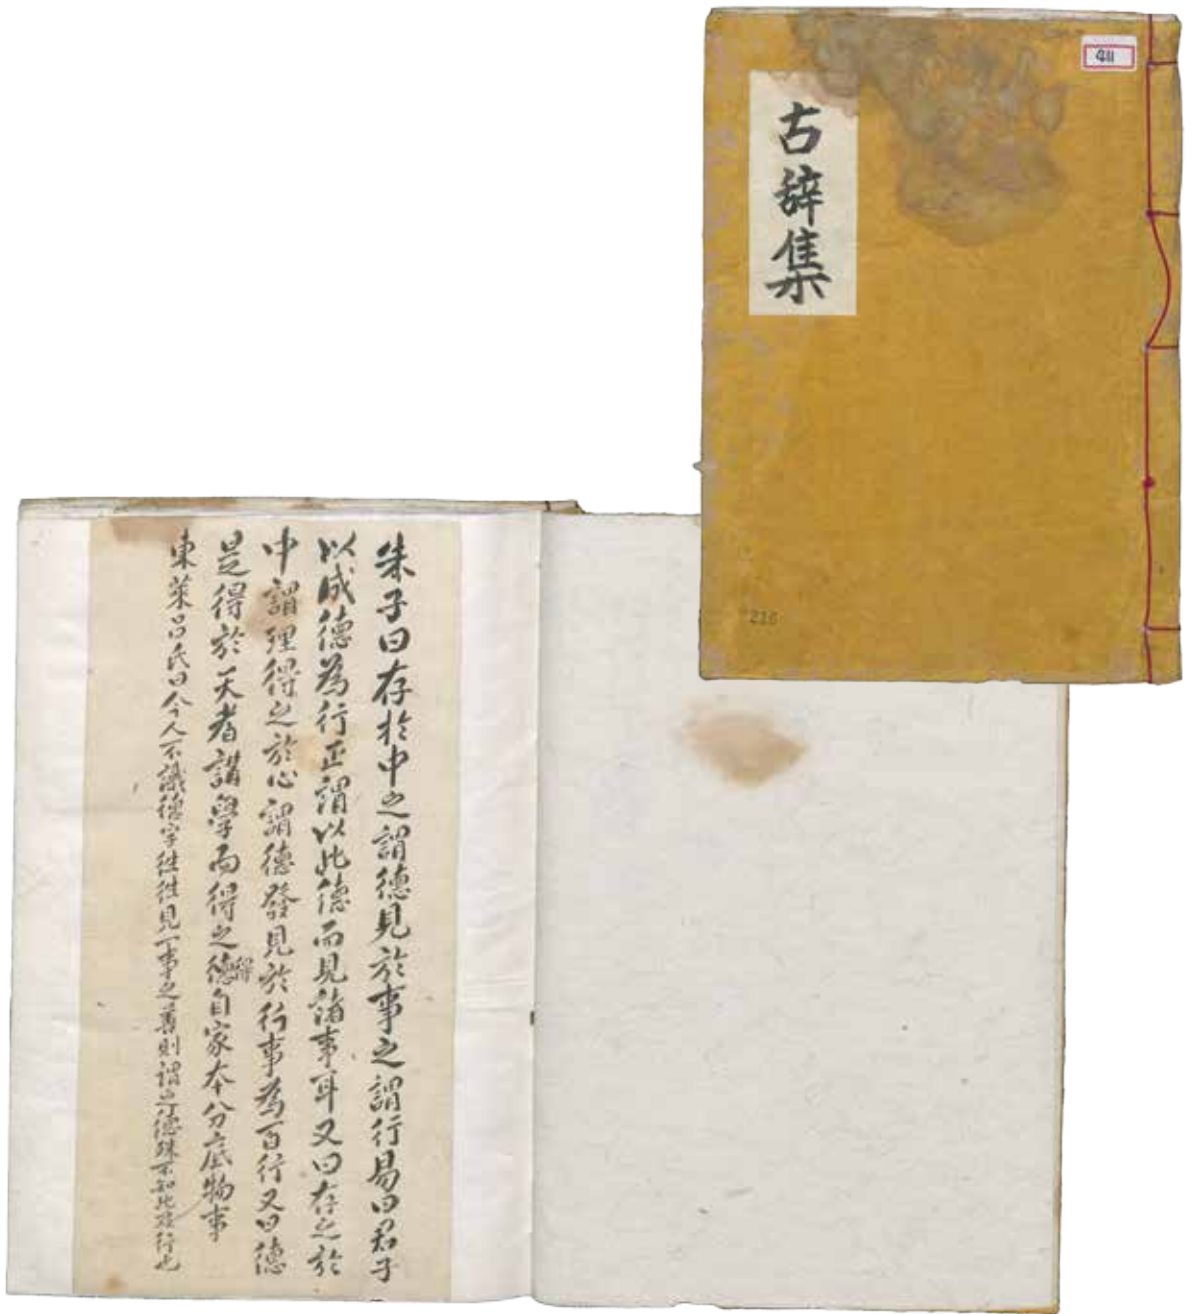 古辞集
411
216
朱子曰存於中之謂德見於事之謂行易曰君子
以成德為行正謂以此德而見諸事耳又曰存之於
中謂理得之於心謂德發見於行事為百行又曰德
是得於天者講學而得之德得自家本分底物事
東萊呂氏曰今人不識德字往往見一事之善則謂之德殊不知此核行也